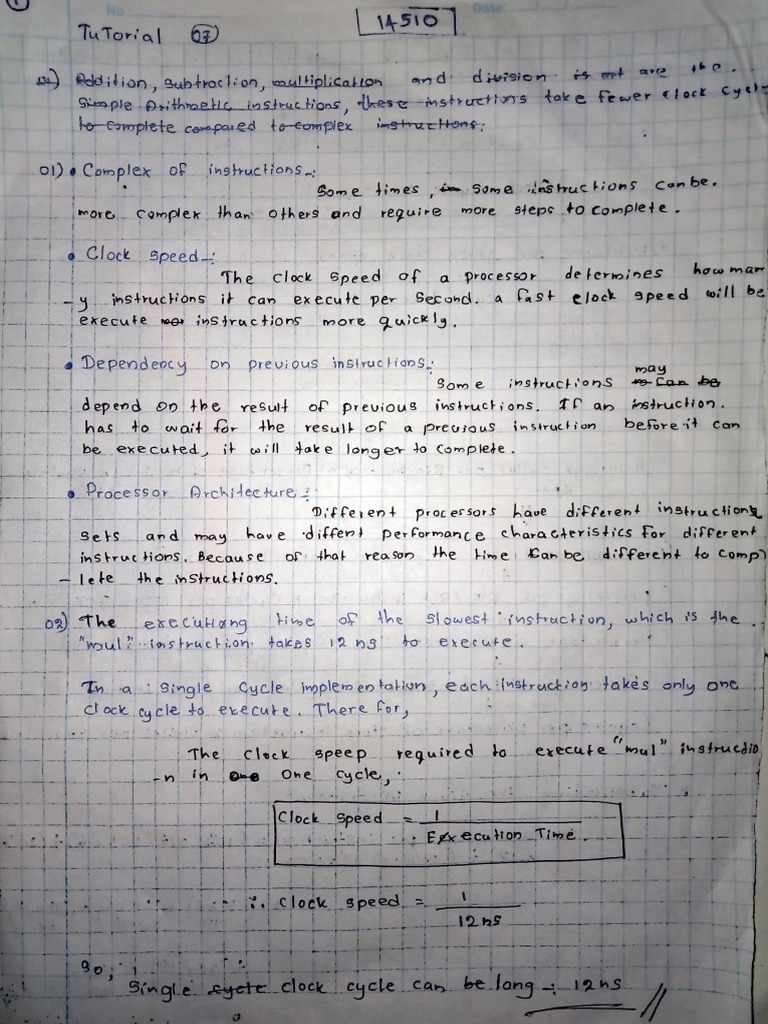 1
No:
Date:
TuTorial 07
14510
02) Addition, subtraction, multiplication and division is not are the.
Simple Arithmetic instructions, these instructions take fewer clock cycle
to complete compared to complex instructions.
01) • Complex of instructions-:
Some times, in some instructions can be.
more complex than others and require more steps to complete.
• Clock speed-:
The clock speed of a processor determines how man
-y instructions it can execute per second. a fast clock speed will be
execute instructions more quickly.
• Dependency on previous instructions-:
may
Some instructions can be
depend on the result of previous instructions. If an instruction.
has to wait for the result of a precious instruction before it can
be executed, it will take longer to complete.
• Processor Architecture-:
Different processors have different instructions
sets and may have diffent performance characteristics for different
instructions. Because of that reason the time can be different to comp
-lete the instructions.
02) The executiong time of the slowest instruction, which is the.
"mul" instruction takes 12 ns to execute.
In a single cycle implementation, each instruction takes only one
clock cycle to execute. There for,
The clock speep required to execute "mul" instructio
-n in one One cycle,
Clock Speed = 1
Execution Time.
∴ Clock speed = 1
12ns
So,
Single cycle clock cycle can be long -: 12ns